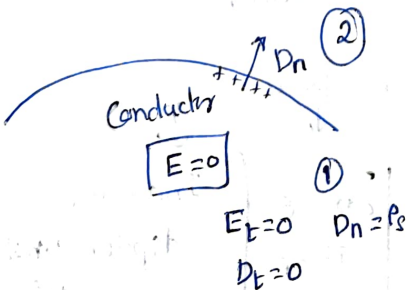 ②
Dn
+ + + +
Conductor
E=0
①
Et=0 Dn=ρs
Dt=0